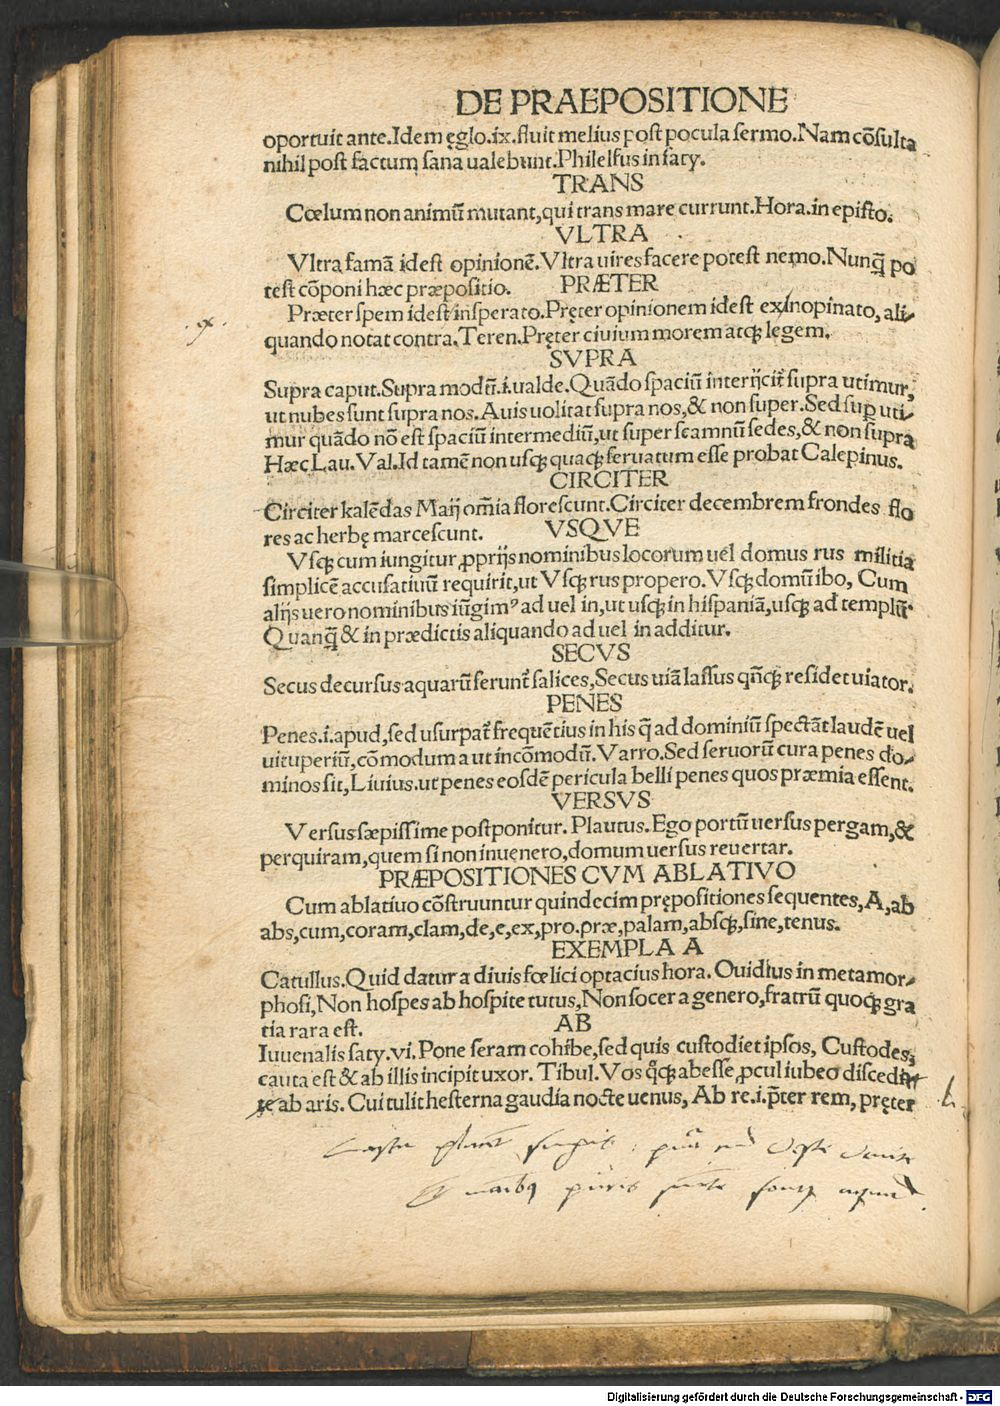 DE PRAEPOSITIONE
oportuit ante.Idem ęglo.ix.fluit melius post pocula sermo.Nam cōsulta
nihil post factum sana ualebunt.Philelfus in saty.
TRANS
Cœlum non animū mutant,qui trans mare currunt.Hora.in episto.
VLTRA
Vltra famā idest opinionē.Vltra uires facere potest nemo.Nunq̄ po
test cōponi hæc præpositio. PRÆTER
Præter spem idest insperato.Pręter opinionem idest exinopinato, ali-
quando notat contra.Teren.Pręter ciuium morem atq; legem.
SVPRA
Supra caput.Supra modū.i.ualde.Quādo spaciū interijcit̄ supra utimur,
ut nubes sunt supra nos.Auis uolitat supra nos,& non super.Sed sup̱ uti-
mur quādo nō est spaciū intermediū,ut super scamnū sedes,& non supra
Hæc Lau.Val.Id tamē non usq; quaq; seruatum esse probat Calepinus.
CIRCITER
Circiter kalēdas Maij om̄ia florescunt.Circiter decembrem frondes flo
res ac herbę marcescunt. VSQVE
Vsq; cum iungitur ꝓprijs nominibus locorum uel domus rus militia
simplicē accusatiuū requirit,ut Vsq; rus propero.Vsq; domū ibo, Cum
alijs uero nominibus iūgimꝰ ad uel in,ut usq; in hispaniā,usq; ad templū.
Quanq̄ & in prædictis aliquando ad uel in additur.
SECVS
Secus decursus aquarū ferunt̄ salices,Secus uiā lassus qn̄q; residet uiator.
PENES
Penes.i.apud,sed usurpat̄ frequētius in his q̄ ad dominiū spectāt laudē uel
uituperiū,cōmodum aut incōmodū.Varro.Sed seruorū cura penes do-
minos sit,Liuius.ut penes eosdē pericula belli penes quos præmia essent.
VERSVS
Versus sæpissime postponitur. Plautus.Ego portū uersus pergam,&
perquiram,quem si non inuenero,domum uersus reuertar.
PRÆPOSITIONES CVM ABLATIVO
Cum ablatiuo cōstruuntur quindecim prępositiones sequentes,A,ab
abs,cum,coram,clam,de,e,ex,pro.præ,palam,absq;,sine,tenus.
EXEMPLA A
Catullus.Quid datur a diuis fœlici optacius hora. Ouidius in metamor-
phosi,Non hospes ab hospite tutus,Non socer a genero,fratrū quoq; gra
tia rara est. AB
Iuuenalis saty.vi.Pone seram cohibe,sed quis custodiet ipsos, Custodes,
cauta est & ab illis incipit uxor. Tibul.Vos q̊q; abesse ꝓcul iubeo discedi
te ab aris. Cui tulit hesterna gaudia nocte uenus, Ab re.i.p̄ter rem, pręter
Digitalisierung gefördert durch die Deutsche Forschungsgemeinschaft - DFG